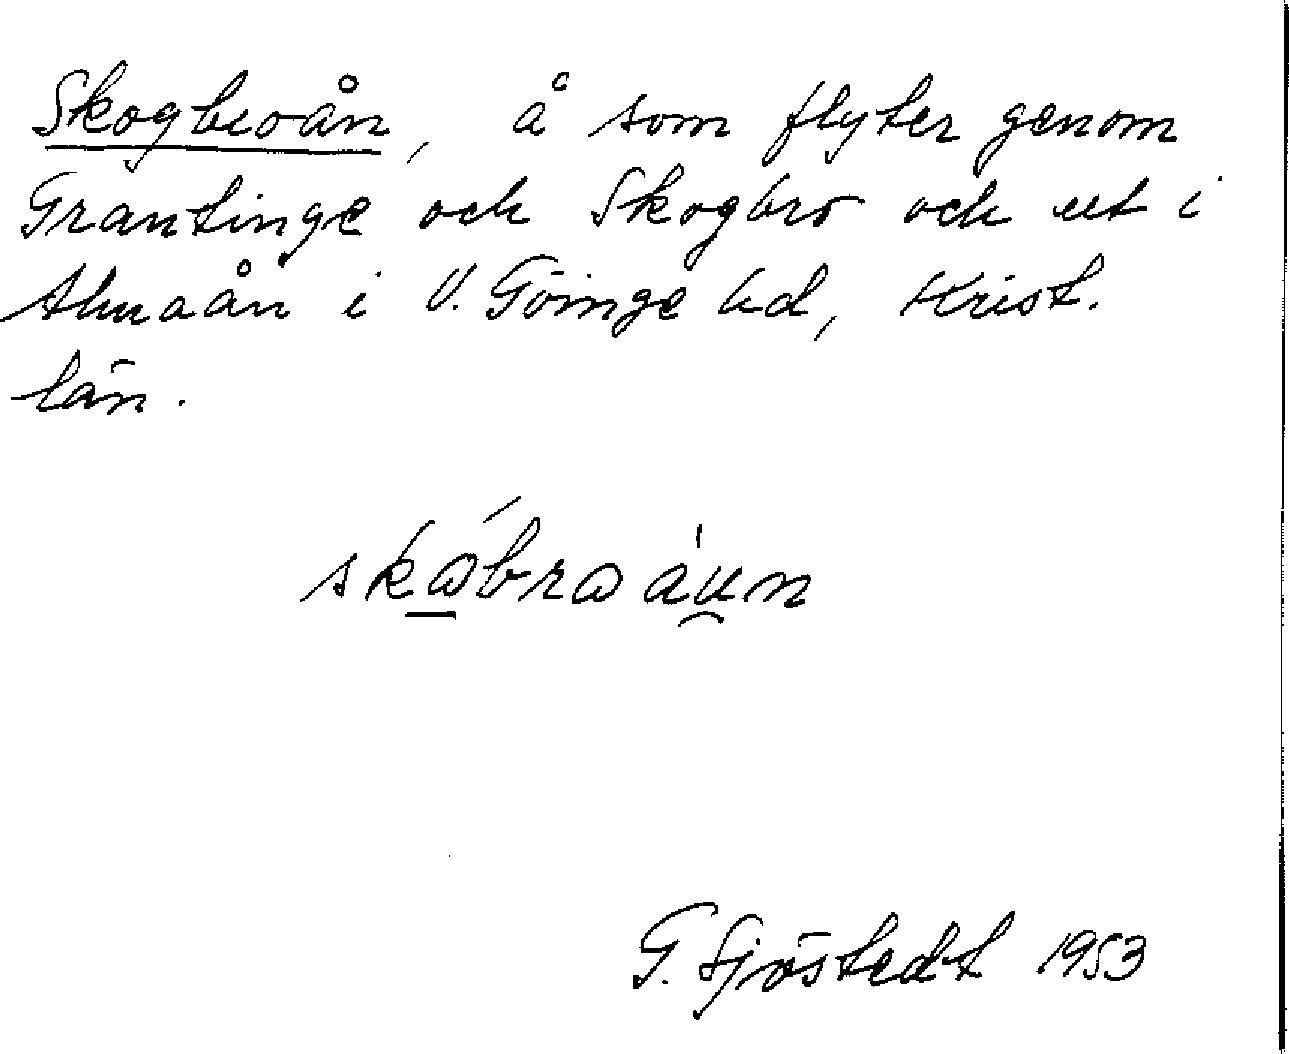 Skogbroån, å som flyter genom
Grantinge och Skogbro och ut i
Almaån i V. Göinge hd, Krist.
län.
skɷbrɷ áun
G. Sjöstedt 1953